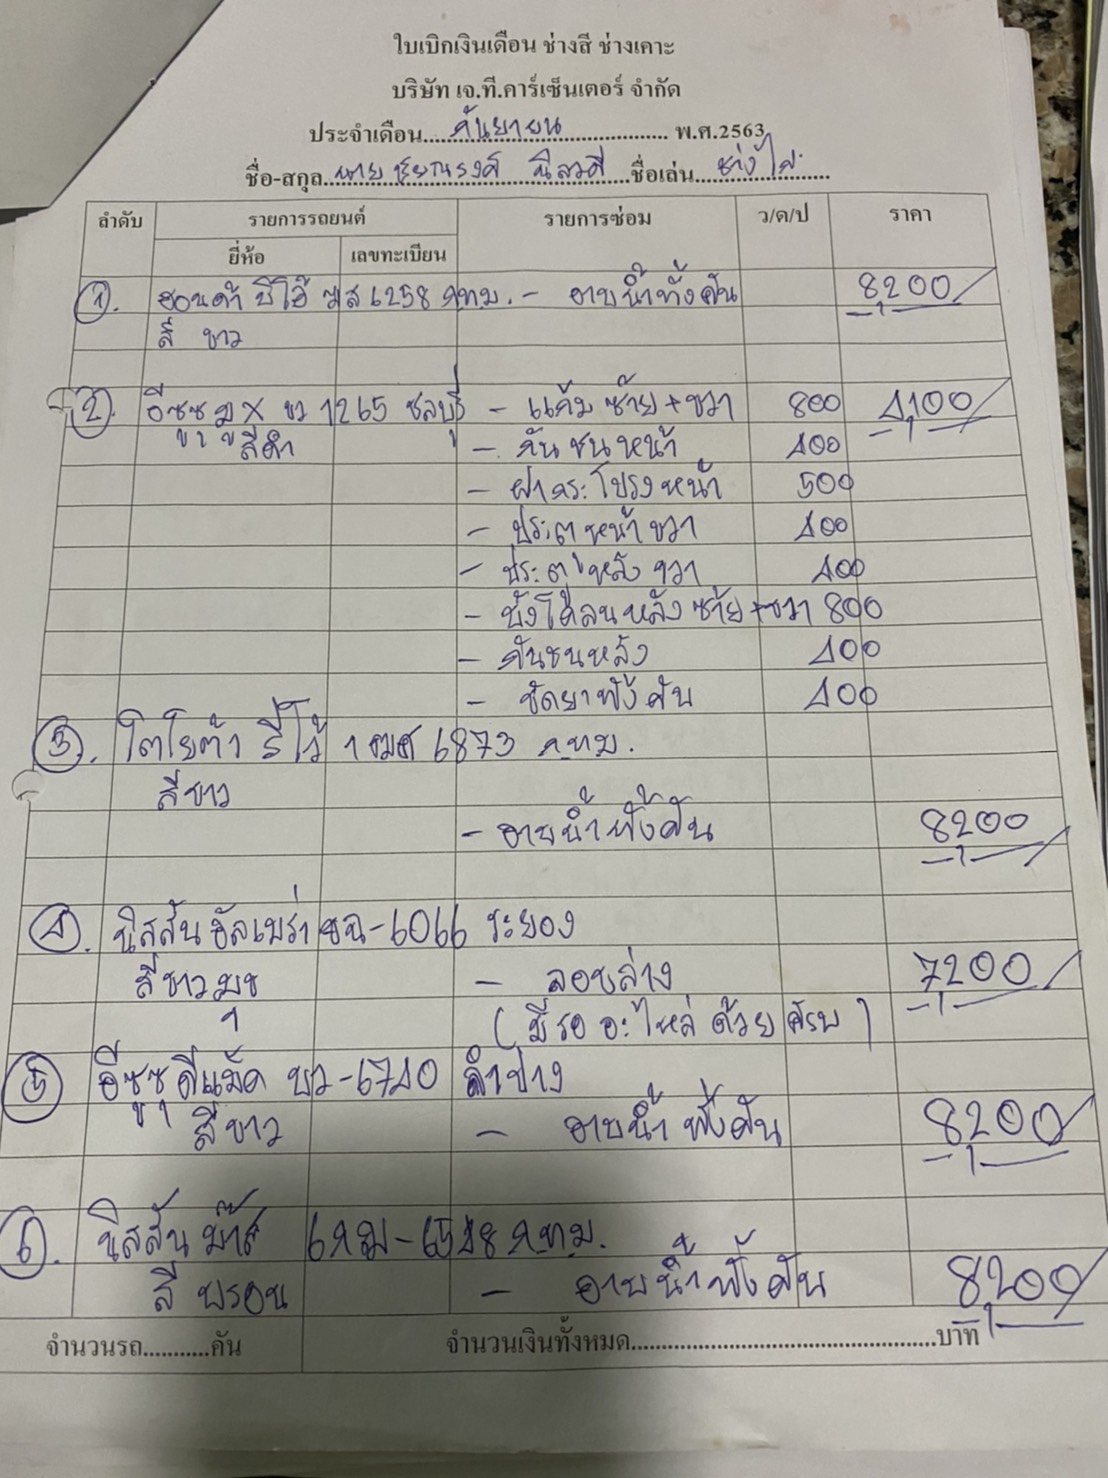 ใบเบิกเงินเดือน ช่างสี ช่างเคาะ
บริษัท เจ.ที.คาร์เซ็นเตอร์ จำกัด
ประจำเดือน....กันยายน.... พ.ศ.2563
ชื่อ-สกุล...นาย ชัยณรงค์ ....ชื่อเล่น...ช่าง
ลำดับ รายการรถยนต์ รายการซ่อม ว/ด/ป ราคา
ยี่ห้อ เลขทะเบียน
1. ฮอนด้า บีโอ้ 1258 กทม. - อาบน้ำทั้งคัน 8,200/
สี ขาว
2. อีซูซุ มูX ขว 1265 ชลบุรี - แก้ม ซ้าย+ขวา 800 4,100/
สีดำ - กันชนหน้า 400
- ฝากระโปรงหน้า 500
- ประตูหน้าขวา 400
- ประตูหลังขวา 400
- บังโคลนหลังซ้าย+ขวา 800
- กันชนหลัง 400
- ขัดยาทั้งคัน 400
3. โตโยต้า รีโว้ 1ฒศ 6873 กทม.
สีขาว
- อาบน้ำทั้งคัน 8,200
4. นิสสัน อัลเมร่า ขฉ-6066 ระยอง
สีขาวมุข - ลอบล่าง 7,200/
(มีรออะไหล่ด้วยครับ)
5 อีซูซุดีแม็ค บว-6740 ลำปาง
สีขาว - อาบน้ำทั้งคัน 8,200/
6. นิสสัน ม๊าส 6กฆ-6548 กทม.
สี บรอน - อาบน้ำทั้งคัน 8,200/
จำนวนรถ...........คัน จำนวนเงินทั้งหมด..........................................................บาท